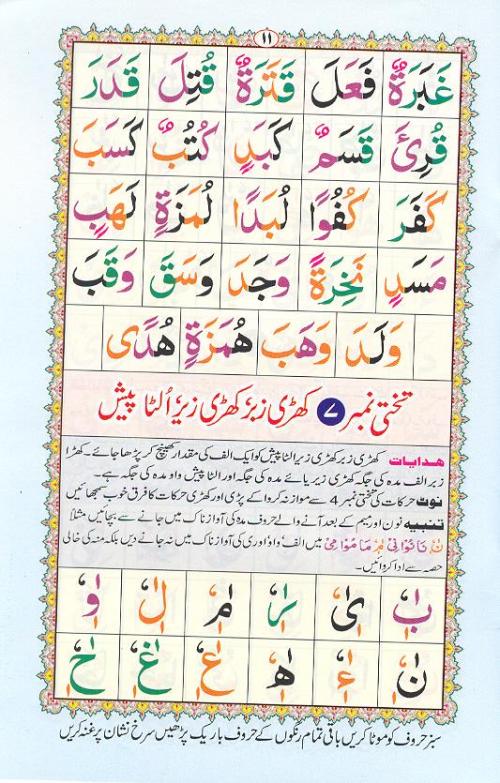 ۱۱
غَبَرَةٌ فَعَلَ قَتَرَةٌ قُتِلَ قَدَرَ
قُرِئَ قَسَمٌ كَبَدٍ كُتُبٌ كَسَبَ
كَفَرَ كُفُوًا لُبَدًا لُمَزَةٍ لَهَبٍ
مَسَدٍ نَخِرَةً وَجَدَ وَسَقَ وَقَبَ
وَلَدَ وَهَبَ هُمَزَةٍ هُدًى
تختی نمبر ۷ کھڑی زبر کھڑی زیر اُلٹا پیش
ھدایات کھڑی زبر کھڑی زیر الٹا پیش کو ایک الف کی مقدار کھینچ کر پڑھا جائے۔ کھڑا
زبر الف مدہ کی جگہ کھڑی زیر یائے مدہ کی جگہ اور الٹا پیش واو مدہ کی جگہ ہے۔
نوٹ حرکات کی تختی نمبر 4 سے موازنہ کروا کے پڑی اور کھڑی حرکات کا فرق خوب سمجھائیں
تنبیہ نون اور میم کے بعد آنے والے حروف مدہ کی آواز ناک میں جانے سے بچائیں مثلاً
نَا نُوْا نِیْ مَا مُوْا مِیْ میں الف واو اور ی کی آواز ناک میں نہ جانے دیں بلکہ منہ کی خالی
حصہ سے ادا کروائیں۔
سبز حروف کو موٹا کریں باقی تمام رنگوں کے حروف باریک پڑھیں سرخ نشان پر غنہ کریں